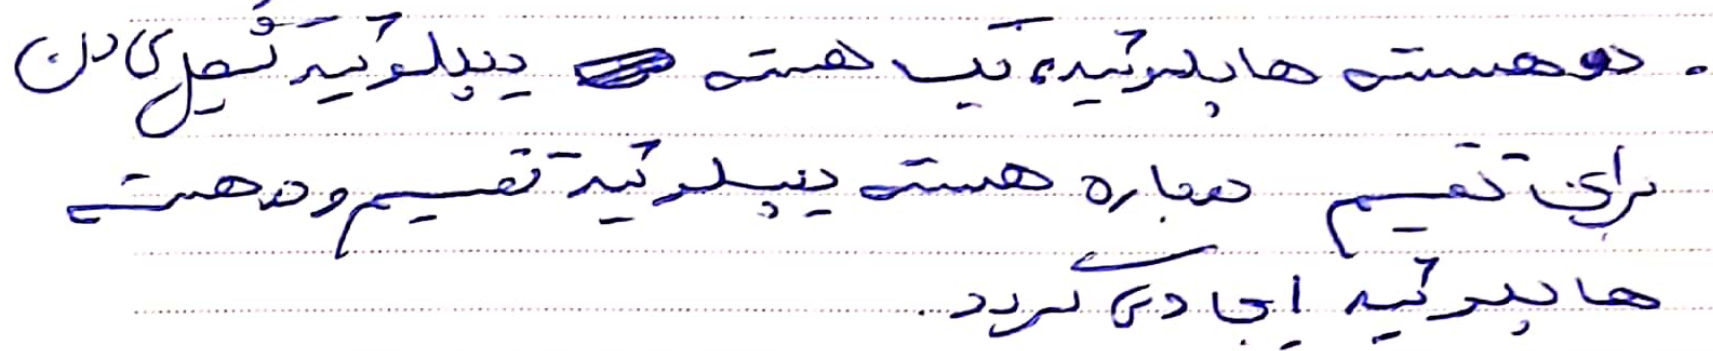 . دو هسته هاپلوئید، یک هسته دیپلوئید تشکیل می‌دهن
برای تقسیم دوباره هسته دیپلوئید تقسیم و دو هسته
هاپلوئید ایجاد می گردد.